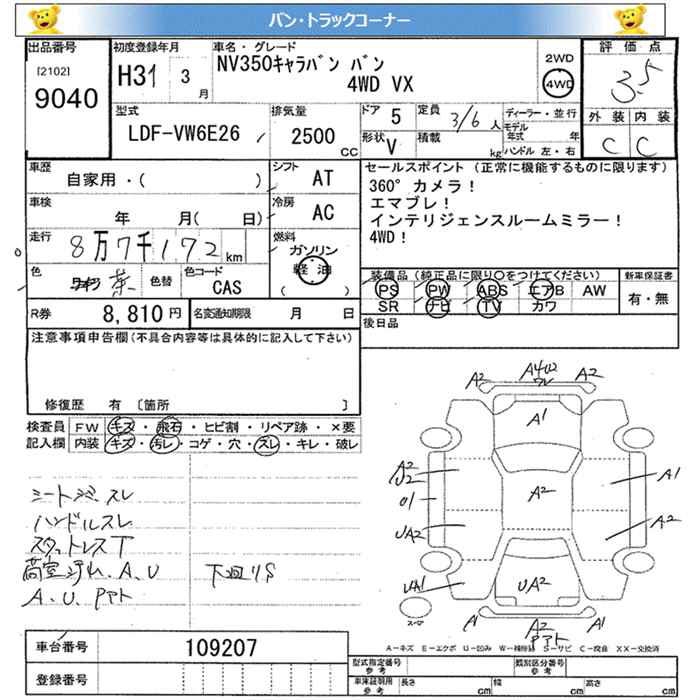 バン・トラックコーナー
出品番号
[2102]
9040
初度登録年月
H31 3 月
車名・グレード
NV350キャラバン バン
4WD VX
2WD
4WD
評価点
3.5
外装 内装
C C
型式
LDF-VW6E26
排気量
2500 CC
ドア 5
形状 V
定員 3/6 人
積載 kg
ディーラー・並行
モデル年式 年
ハンドル 左・右
車歴
自家用・( )
シフト AT
車検
年 月( 日)
冷房 AC
走行
8万7千172 km
燃料
ガソリン
軽油
色 茶
色替
色コード
CAS
セールスポイント (正常に機能するものに限ります)
360°カメラ!
エマブレ!
インテリジェンスルームミラー!
4WD!
装備品(純正品に限り○をつけてください)
新車保証書
PS PW ABS エアB AW
SR ナビ TV カワ
有・無
後日品
R券 8,810円
名変通知期限 月 日
注意事項申告欄(不具合内容等は具体的に記入して下さい)
修復歴 有 [箇所 ]
検査員記入欄
FW キズ・飛石・ヒビ割・リペア跡・×要
内装 キズ・汚レ・コゲ・穴・スレ・キレ・破レ
スレ
ハンドルスレ
スタットレスT
荷室汚れ、A、U
下廻りS
A、U、Pアト
A2 A2
A1
A2
U2
U1
A2
UA2
A1
A2
UA1
UA2
A1 A1
A2
Pアト
A-キズ E-エクボ U-凹み W-補修跡 S-サビ C-腐食 XX-交換済
車台番号 109207
登録番号
型式指定番号
参考
類別区分番号
参考
車庫証明用
参考
長さ cm 幅 cm 高さ cm